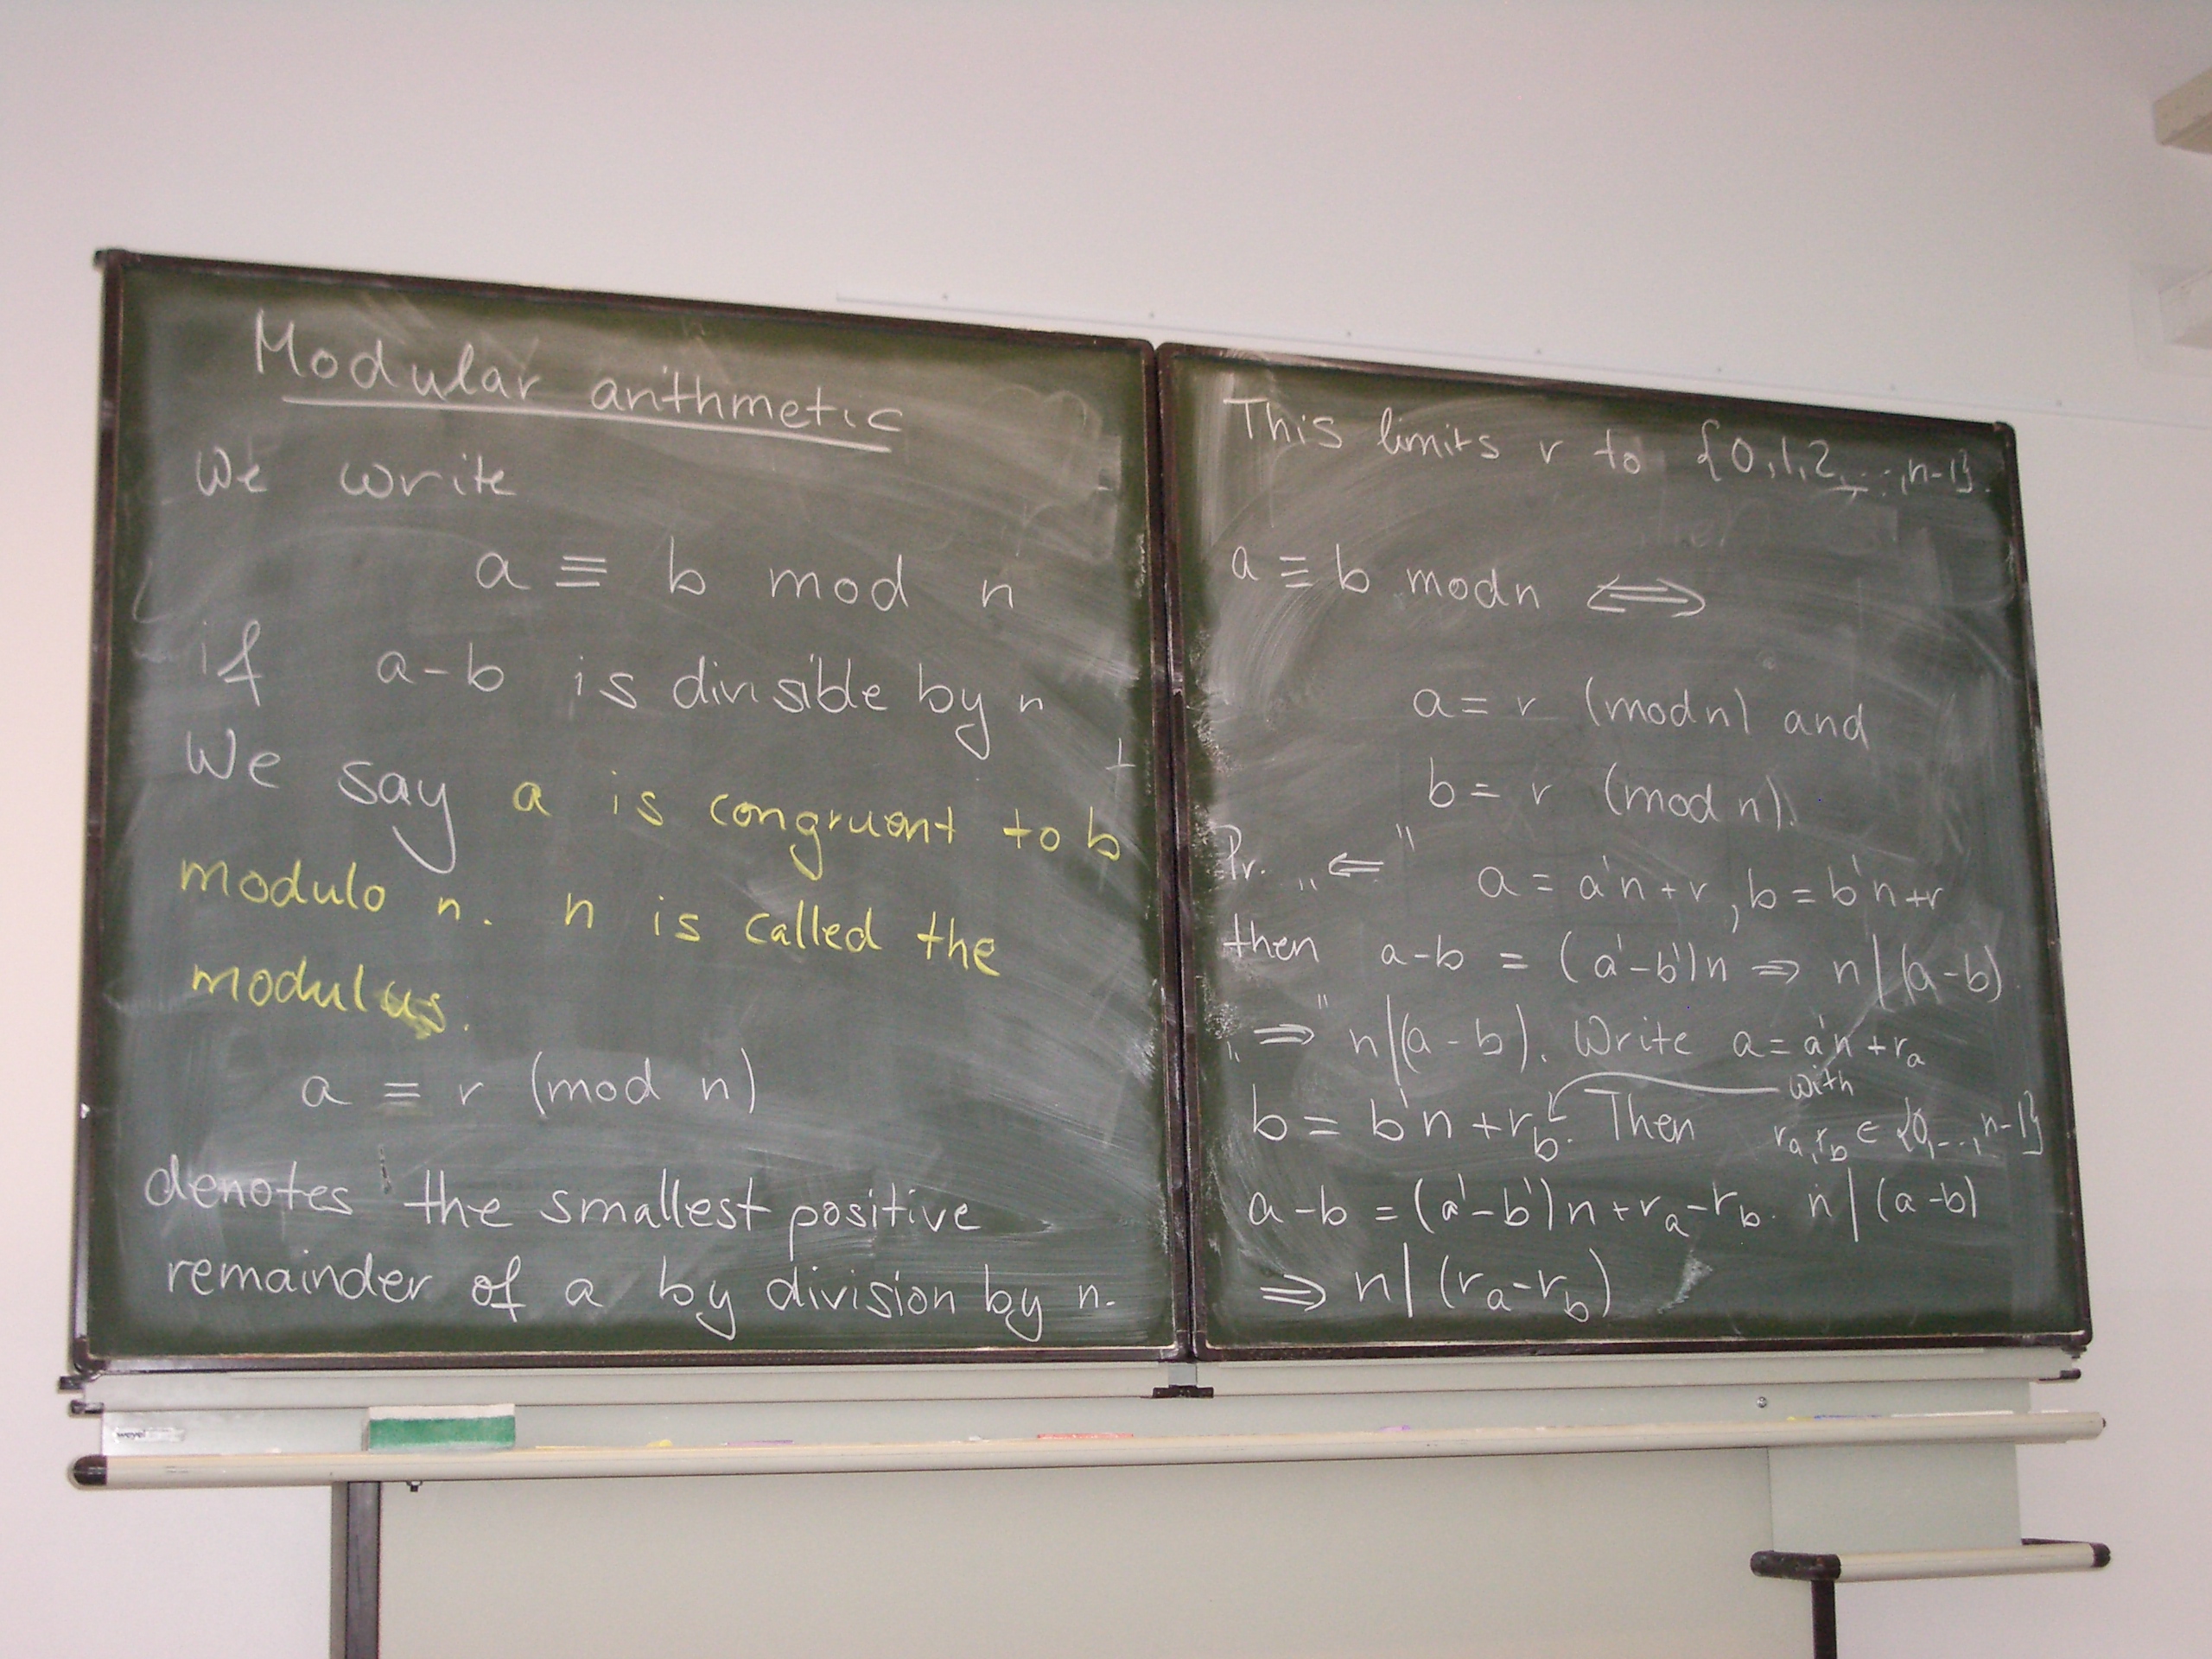 Modular arithmetic
We write
a ≡ b mod n
if a-b is divisible by n
We say a is congruent to b
modulo n. n is called the
modulus.
a = r (mod n)
denotes the smallest positive
remainder of a by division by n.
This limits r to {0,1,2,...,n-1}.
a ≡ b mod n ⟺
a = r (mod n) and
b = r (mod n).
Pr. „⇐" a = a'n + r, b = b'n+r
then a-b = (a'-b')n ⇒ n|(a-b).
„⇒" n|(a-b). Write a = a'n + rₐ
b = b'n + r_b. Then with
rₐ, r_b ∈ {0,...,n-1}
a-b = (a'-b')n + rₐ-r_b. n|(a-b)
⇒ n|(rₐ-r_b)
weyel